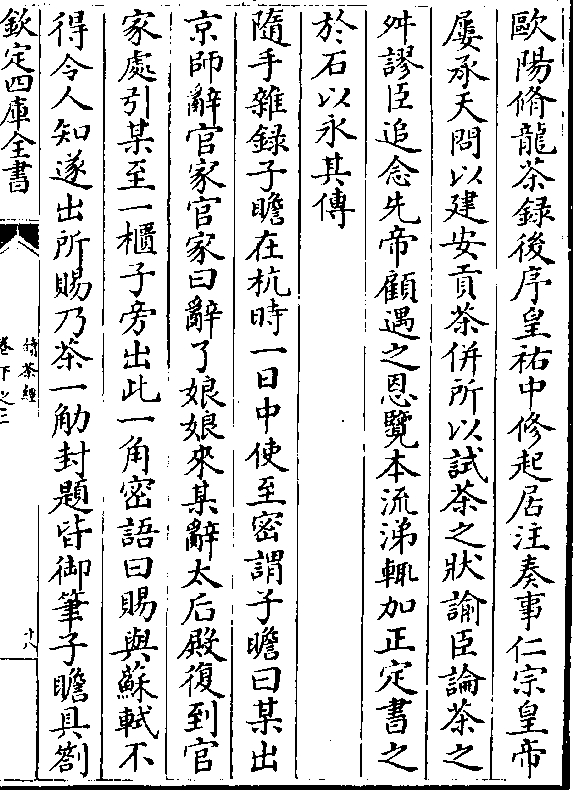 歐陽脩龍茶録後序皇祐中修起居注奏事仁宗皇帝
屢承天問以建安貢茶併所以試茶之狀諭臣論茶之
舛謬臣追念先帝顧遇之恩覽本流涕輒加正定書之
於石以永其傳
隨手雜録子瞻在杭時一日中使至密謂子瞻曰某出
京師辭官家官家曰辭了娘娘來某辭太后殿復到官
家處引某至一櫃子旁出此一角密語曰賜與蘇軾不
得令人知遂出所賜乃茶一觔封題皆御筆子瞻具劄
欽定四庫全書
續茶經
卷下之三
十八